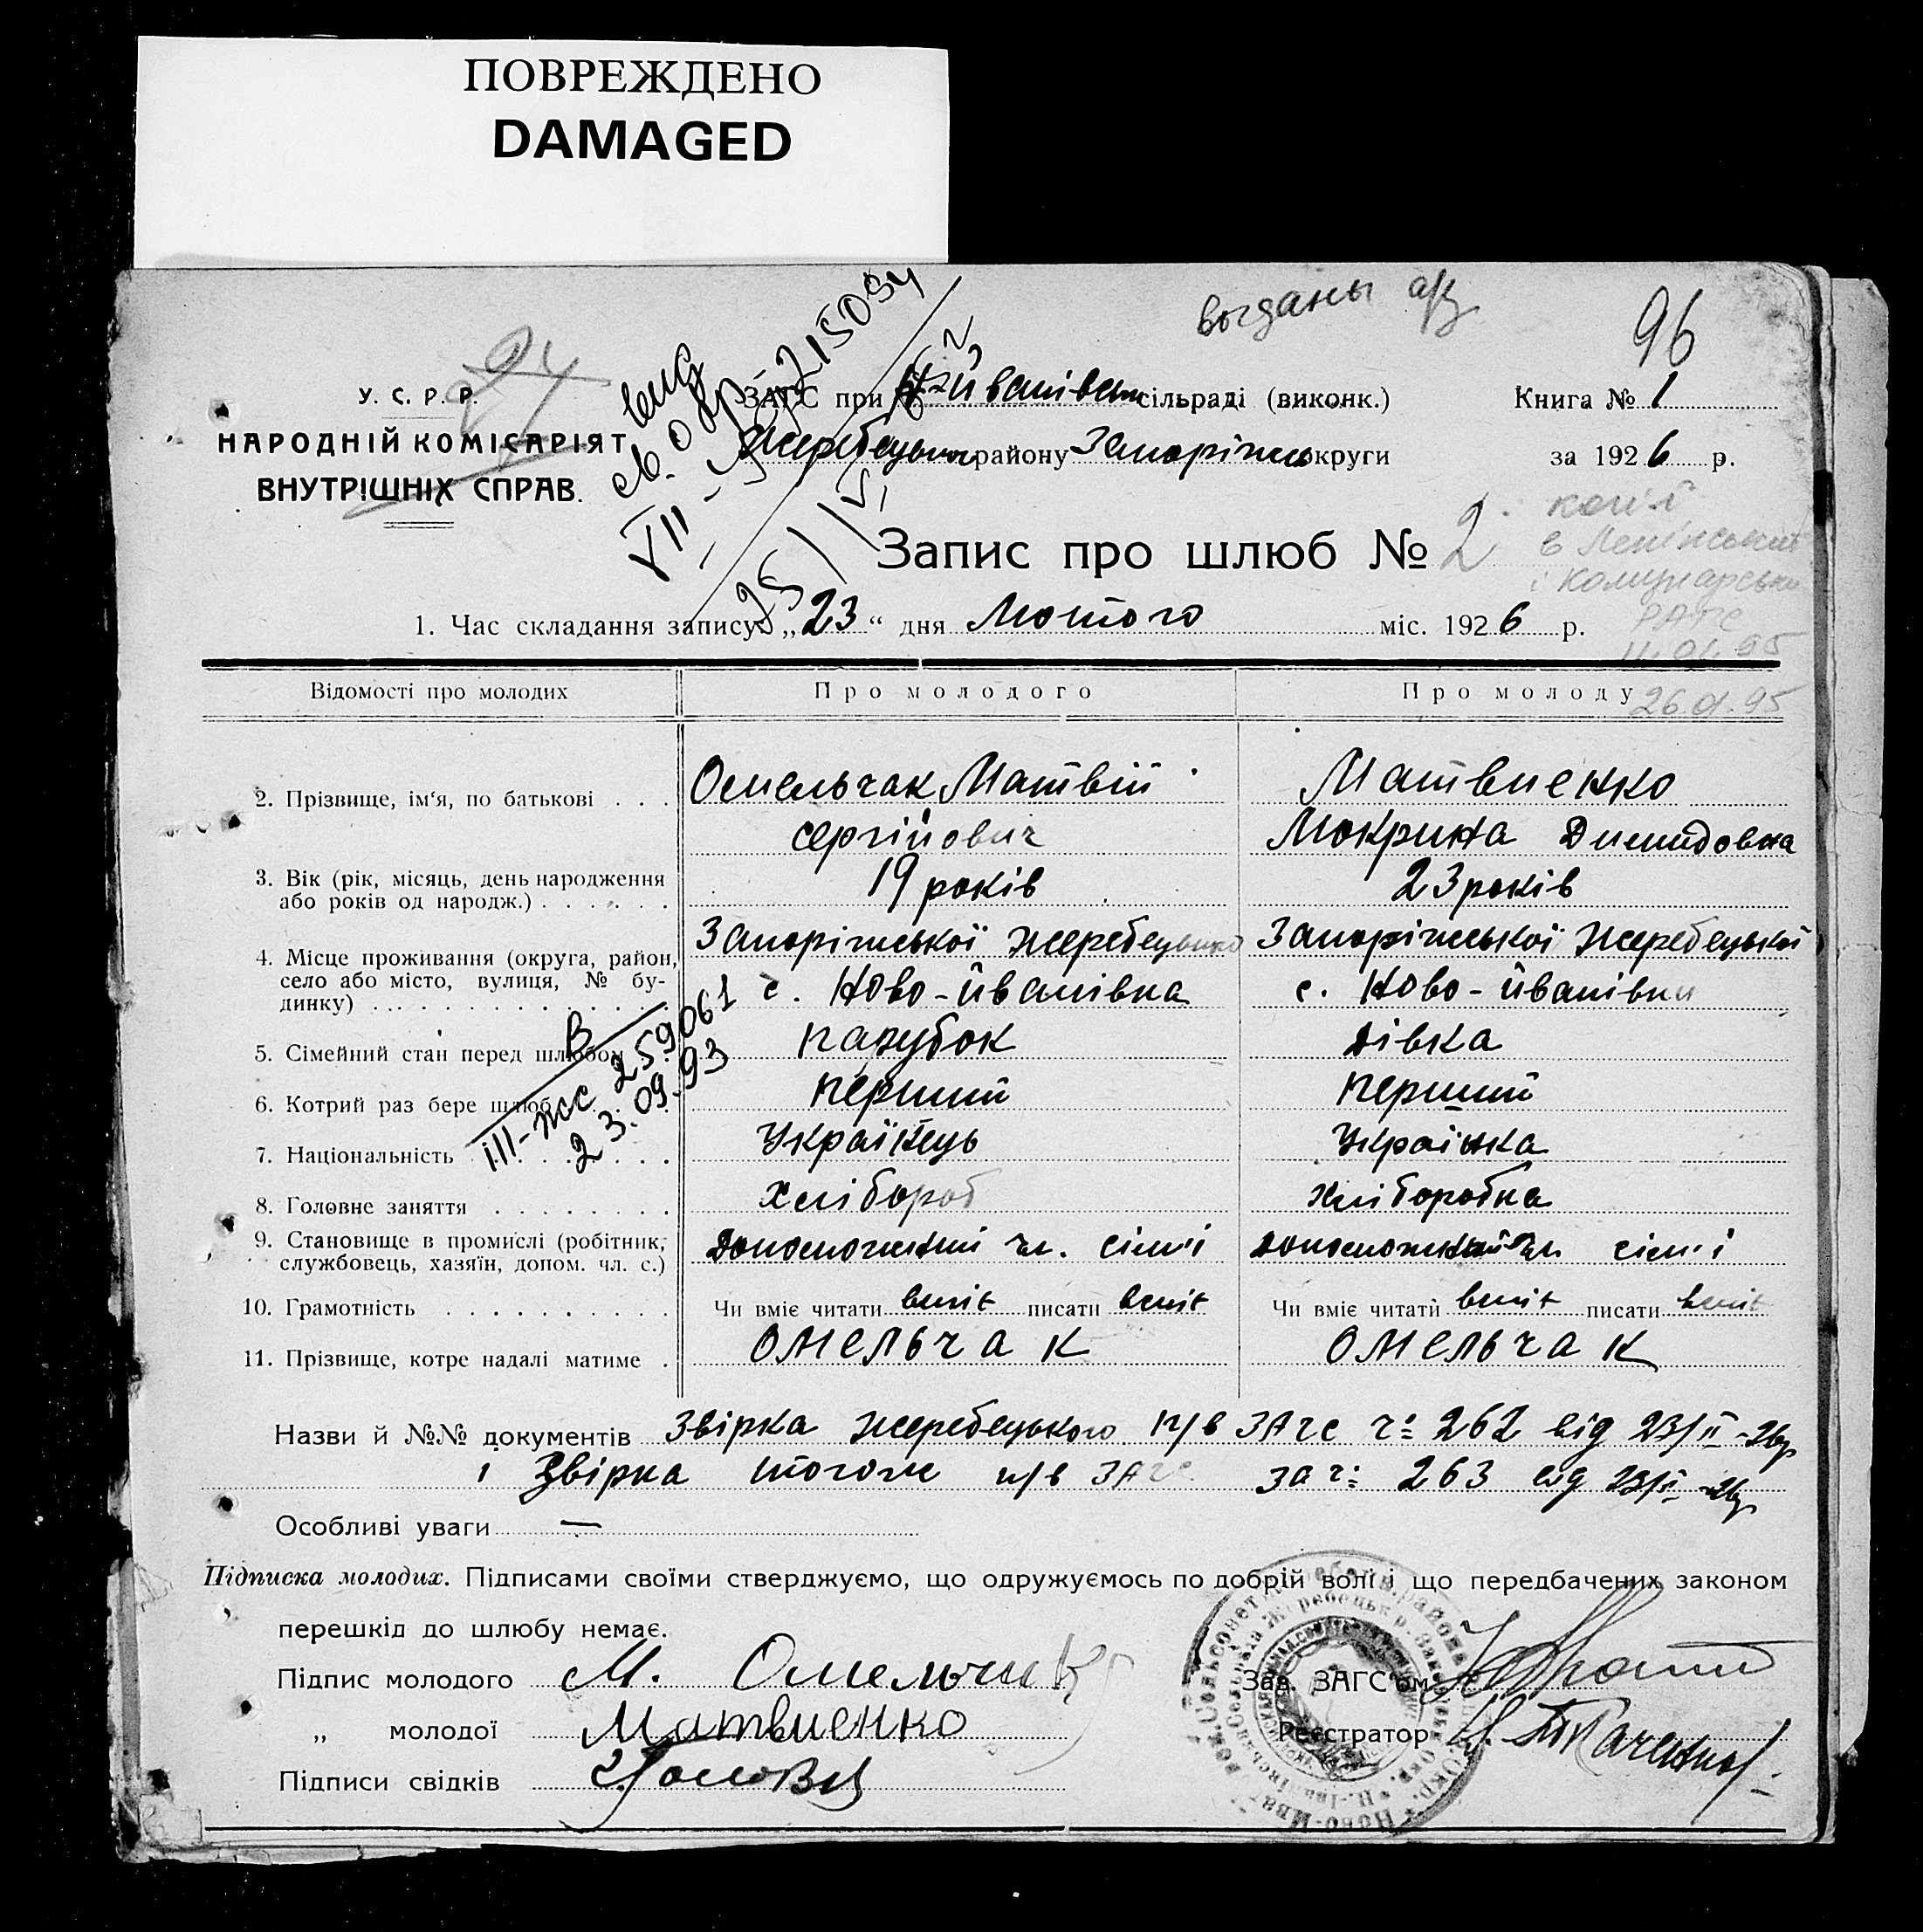 ПОВРЕЖДЕНО
DAMAGED
96
У. С. Р. Р.
НАРОДНІЙ КОМІСАРІЯТ
ВНУТРІШНІХ СПРАВ.
ЗАГС при Н-Йванівськ сільраді (виконк.)
Жеребецьк району Запоріжс округи
Книга № 1
за 1926 р.
Запис про шлюб № 2
копії
в Ленінський
і Комунарськи
РАГС
11.01.95
26.01.95
1. Час складання запису „23“ дня Лютого міс. 1926 р.
Відомості про молодих Про молодого Про молоду
2. Прізвище, ім‘я, по батькові . . . Омельчак Матвій Матвиенко
Сергійович Мокрина Димидовна
3. Вік (рік, місяць, день народження
або років од народж.) . . . . . . 19 років 23 років
4. Місце проживання (округа, район, Запоріжської Жеребецької Запоріжської Жеребецької
село або місто, вулиця, № бу- с. Ново-Йванівка с. Ново-Йванівки
динку) . . . . . . . . . . . .
5. Сімейний стан перед шлюбом парубок дівка
6. Котрий раз бере шлюб перший перший
7. Національність Українець Українка
III-ЖС 259061
23.09.93
8. Головне заняття . . . . . . . . Хлібороб Хлиборобка
9. Становище в промислі (робітник, допоможний чл. сімї допоможний чл сімї
службовець, хазяїн, допом. чл. с.)
10. Грамотність . . . . . . . . . . Чи вміє читати вміє писати вміє Чи вміє читати вміє писати вміє
11. Прізвище, котре надалі матиме . Омельчак Омельчак
Назви й №№ документів Звірка Жеребецького п/в ЗАГС ч: 262 від 23/II-26р
і Звірка того ж п/в ЗАГС за ч: 263 від 23/II-26р
Особливі уваги —
Підписка молодих. Підписами своїми стверджуємо, що одружуємось по добрій волі і що передбачених законом
перешкід до шлюбу немає.
Підпис молодого М. Омельчак Зав. ЗАГС‘ом
„ молодої Матвиенко Реєстратор Ткаченко
Підписи свідків